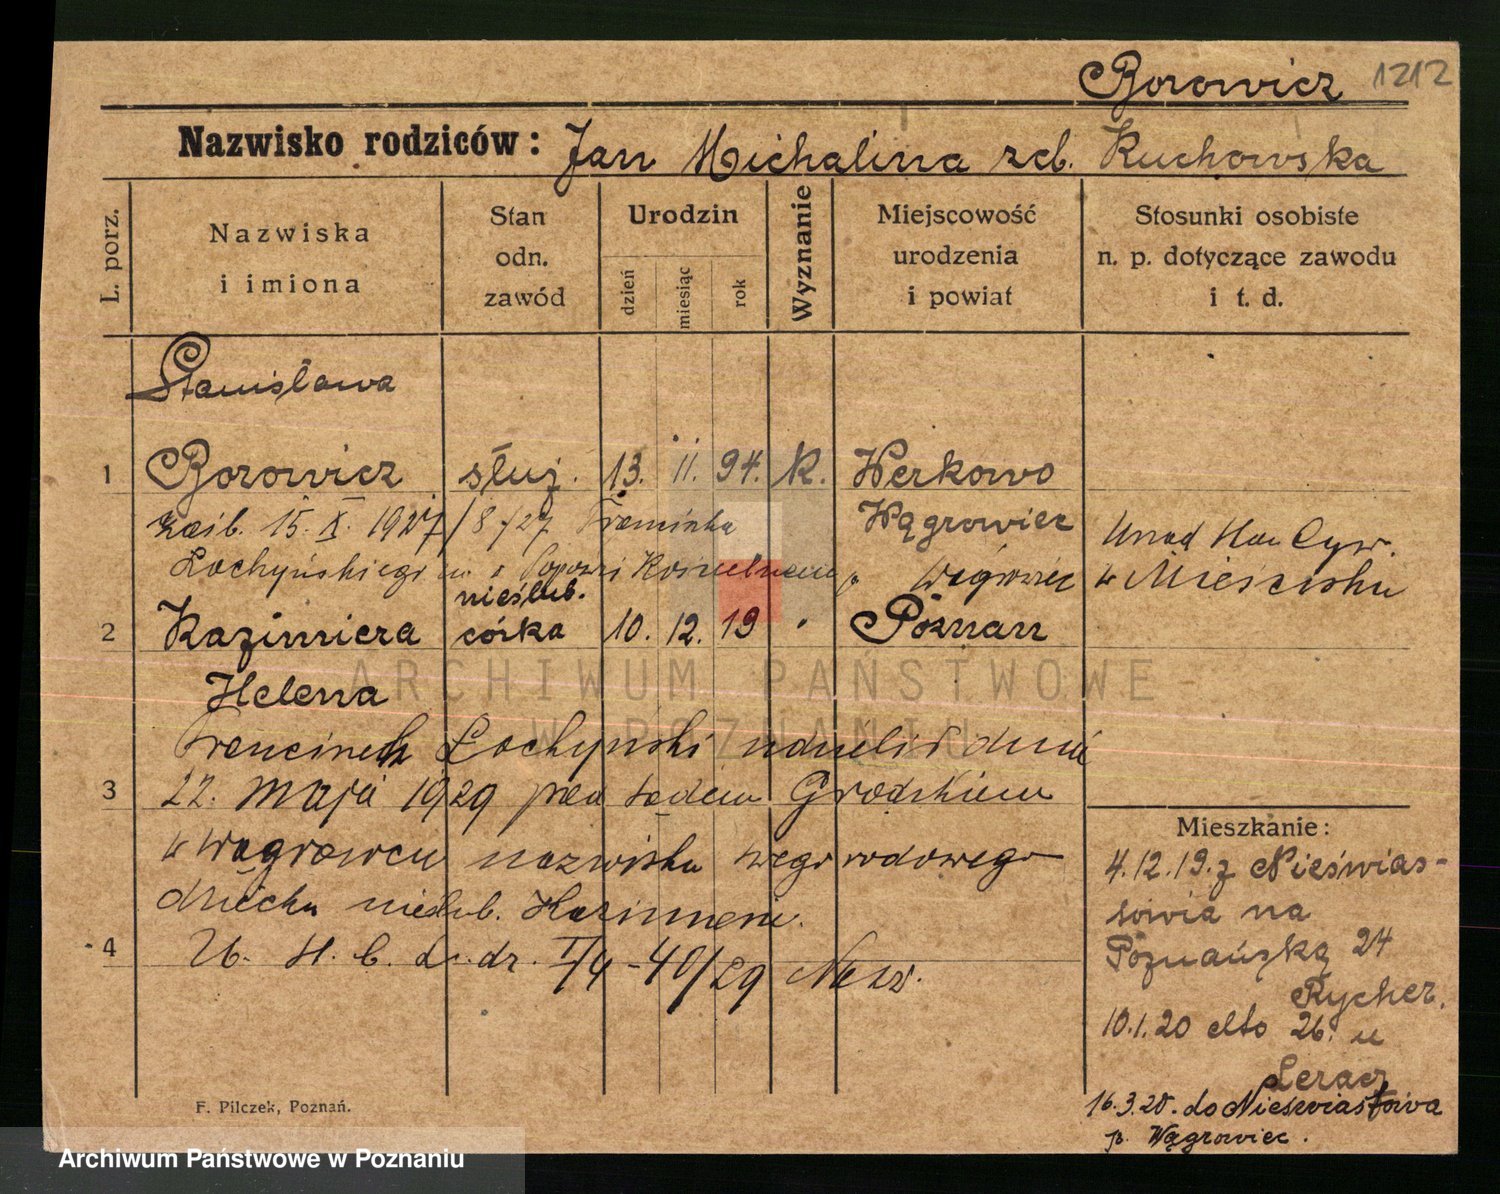 Borowicz 1212
Nazwisko rodziców: Jan Michalina zeb. Kuchowska
L. porz.
Nazwiska
i imiona
Stan
odn.
zawód
Urodzin
dzień
miesiąc
rok
Wyznanie
Miejscowość
urodzenia
i powiat
Stosunki osobiste
n. p. dotyczące zawodu
i t. d.
Stanisława
1 Borowicz służ. 13. 11. 94. K. Werkowo
zaśb. 15. X. 1927 /8/27 Wągrowiec
Łochyńskiego w Popowie Kościelnem p. Wągrowiec
Urząd Stan Cyw.
w Mieścisku
nieślub.
2 Kazimiera córka 10. 12. 19 Poznan
Helena
Łochyński udzielił dnia
3 22. maja 1929 przed Sądem Grodzkiem
w Wągrowcu nazwiska swego rodowego
dziecku nieślub. Kazimierze.
4 U. S. C. L. dz. I/4-40/29 Nazw.
Mieszkanie:
4.12.19. z Nieświas-
towia na
Poznańską 24
Rycher.
10.1.20 dto 26. u
Leracz
16.3.20. do Nieswiastowa
p. Wągrowiec.
F. Pilczek, Poznań.
ARCHIWUM PAŃSTWOWE
W POZNANIU
Archiwum Państwowe w Poznaniu